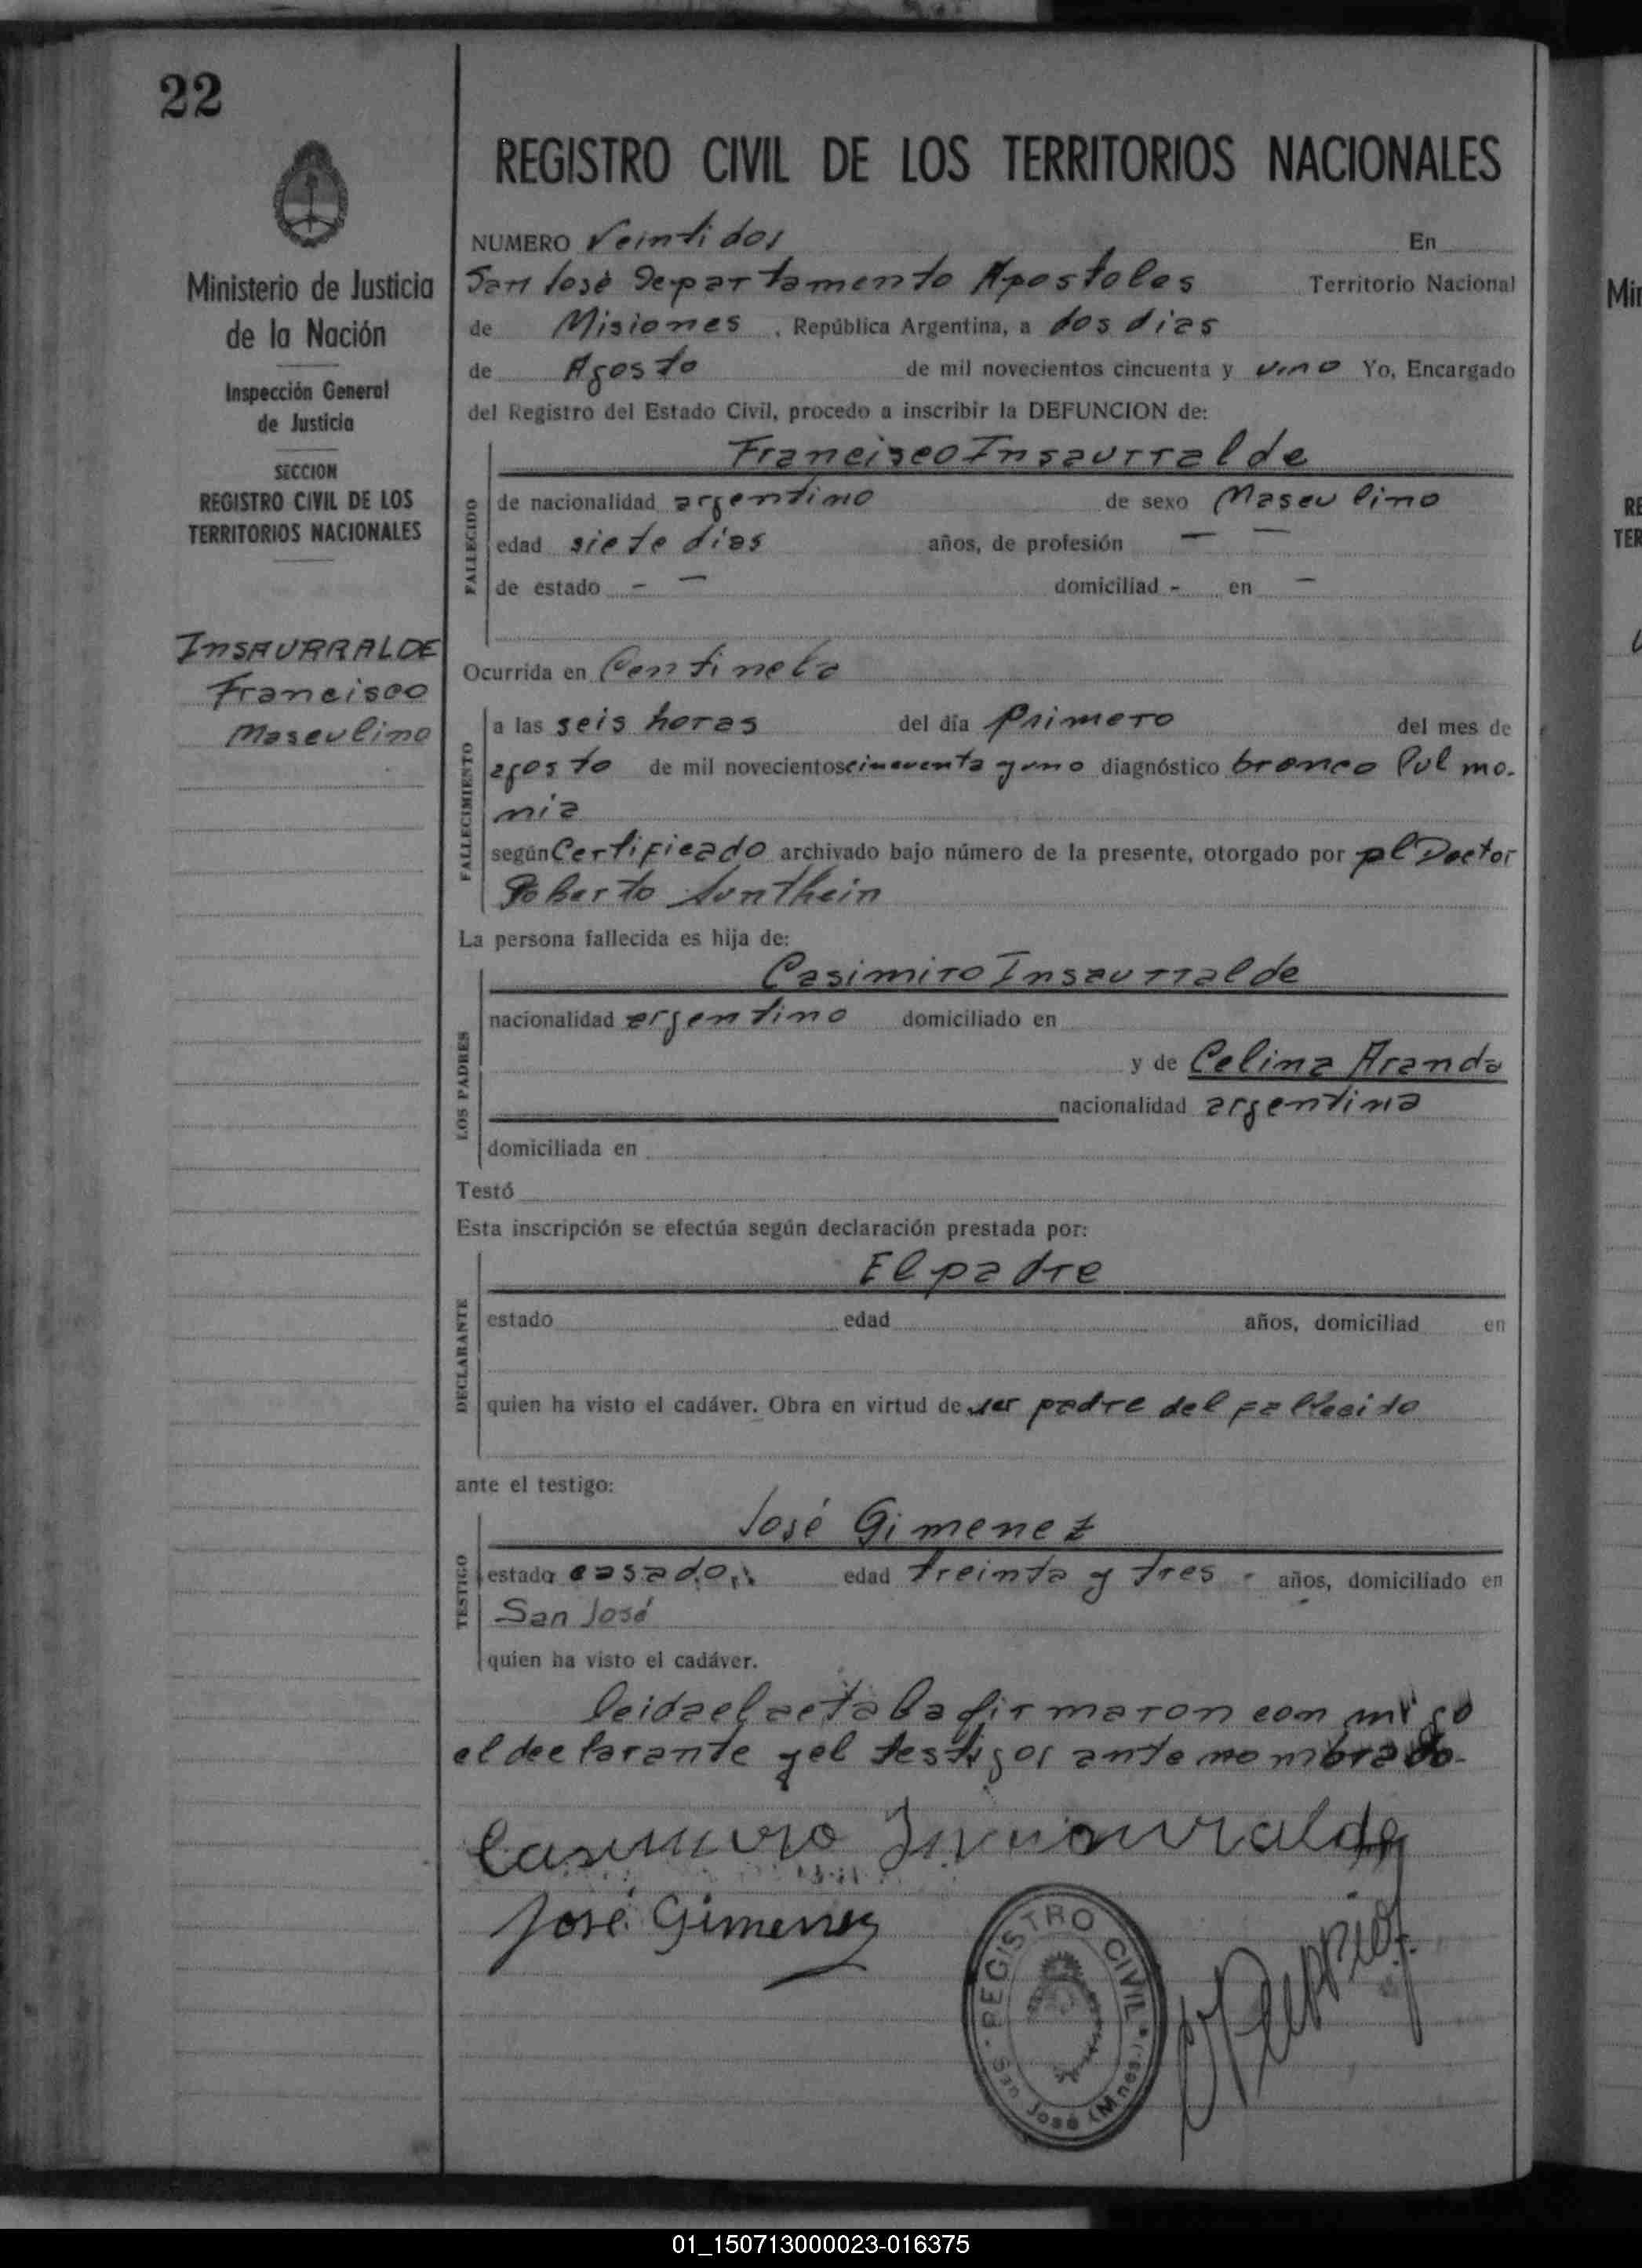 22
REGISTRO CIVIL DE LOS TERRITORIOS NACIONALES
Ministerio de Justicia
de la Nación
Inspección General
de Justicia
SECCION
REGISTRO CIVIL DE LOS
TERRITORIOS NACIONALES
INSAURRALDE
Francisco
Masculino
NUMERO Veintidos En
San José Departamento Apostoles Territorio Nacional
de Misiones , República Argentina, a dos dias
de Agosto de mil novecientos cincuenta y uno Yo, Encargado
del Registro del Estado Civil, procedo a inscribir la DEFUNCION de:
FALLECIDO
Francisco Insaurralde
de nacionalidad argentino de sexo Masculino
edad siete dias años, de profesión — —
de estado - — domiciliad - en —
Ocurrida en Centinela
FALLECIMIENTO
a las seis horas del día primero del mes de
agosto de mil novecientos cincuenta y uno diagnóstico bronco Pulmo-
nia
según Certificado archivado bajo número de la presente, otorgado por el Doctor
Roberto
La persona fallecida es hija de:
LOS PADRES
Casimiro Insaurralde
nacionalidad argentino domiciliado en
y de Celina Aranda
nacionalidad argentina
domiciliada en
Testó
Esta inscripción se efectúa según declaración prestada por:
DECLARANTE
El padre
estado edad años, domiciliad en
quien ha visto el cadáver. Obra en virtud de ser padre del fallecido
ante el testigo:
TESTIGO
José Gimenez
estado casado edad treinta y tres - años, domiciliado en
San José
quien ha visto el cadáver.
leida el acta la firmaron con migo
el declarante y el testigos ante nombrado-
Casimiro Insaurralde
José Gimenez
REGISTRO CIVIL
San José (Mnes.)
Min
RE
TER
01_150713000023-016375